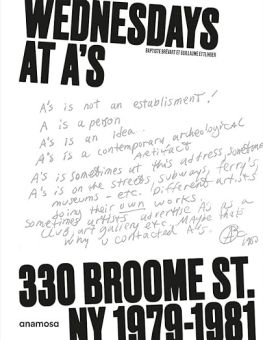 WEDNESDAYS
BAPTISTE BRÉVART ET GUILLAUME ETTLINGER
AT A'S
A'S is not an establisment!
A is a person
A'S is an idea.
A'S is a contemporary archeological
Artifact
A'S is sometimes at this address, sometime
A'S is on the streets, subways, ferry's,
museums - etc. Different artists
doing their own works.
sometimes artists advertise A's as a
club, art gallery etc. Maybe thats
why u contacted A's.
330 BROOME ST.
anamosa
NY 1979-1981